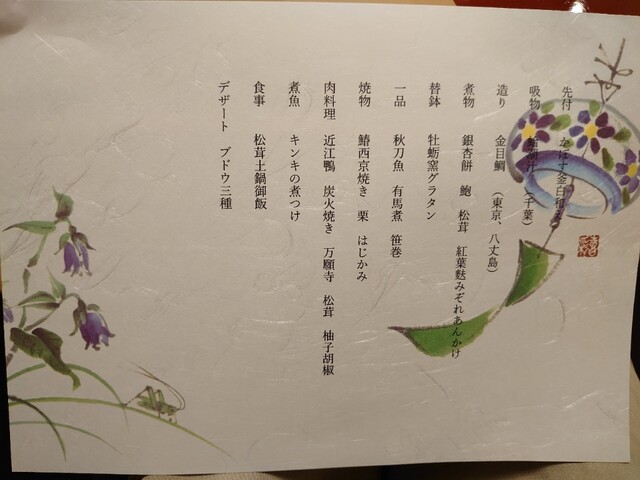 先付 かます金白和え
吸物 蛤潮汁 （千葉）
造り 金目鯛 （東京、八丈島）
煮物 銀杏餅 鮑 松茸 紅葉麩みぞれあんかけ
替鉢 牡蛎窯グラタン
一品 秋刀魚 有馬煮 笹巻
焼物 鰆西京焼き 栗 はじかみ
肉料理 近江鴨 炭火焼き 万願寺 松茸 柚子胡椒
煮魚 キンキの煮つけ
食事 松茸土鍋御飯
デザート ブドウ三種